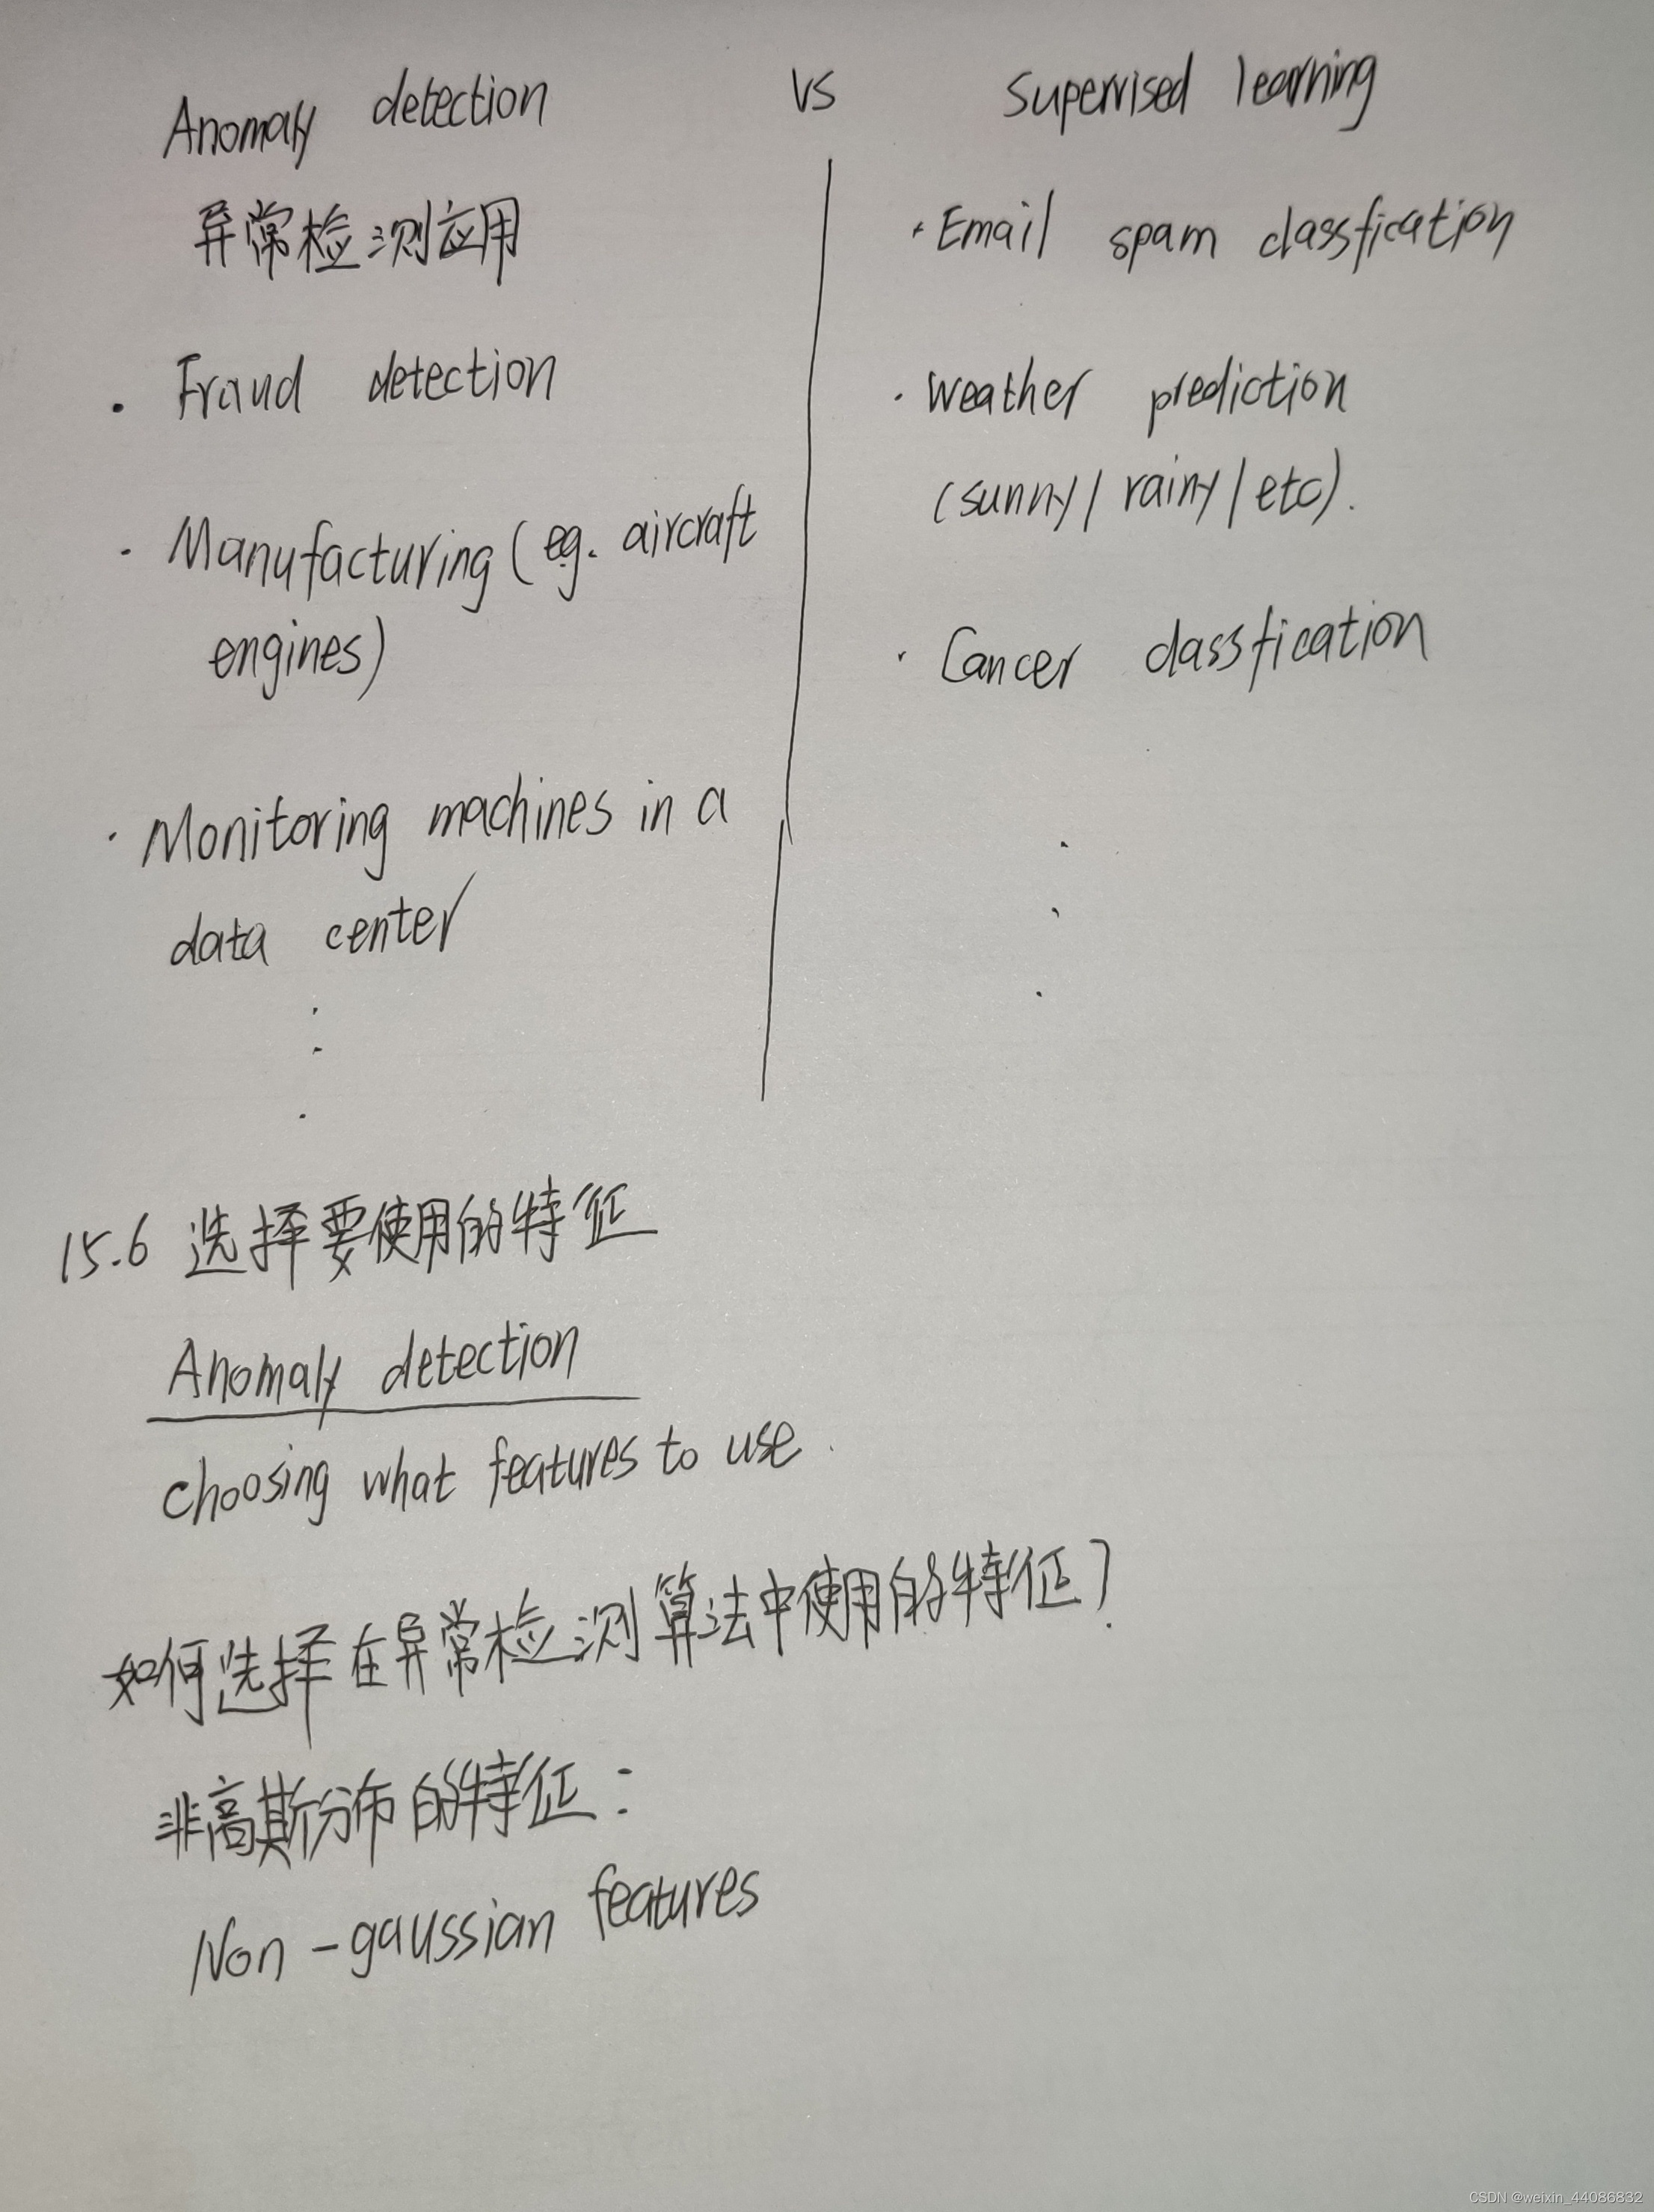 Anomaly detection vs Supervised learning
异常检测应用
· Fraud detection
· Manufacturing (eg. aircraft
engines)
· Monitoring machines in a
data center
· Email spam classfication
· Weather prediction
(sunny/rainy/etc).
· Cancer classfication
15.6 选择要使用的特征
Anomaly detection
choosing what features to use.
如何选择在异常检测算法中使用的特征?
非高斯分布的特征:
Non-gaussian features
CSDN @weixin_44086832